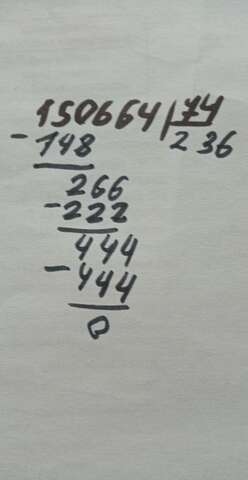 150664 74
- 148 236
266
- 222
444
- 444
0